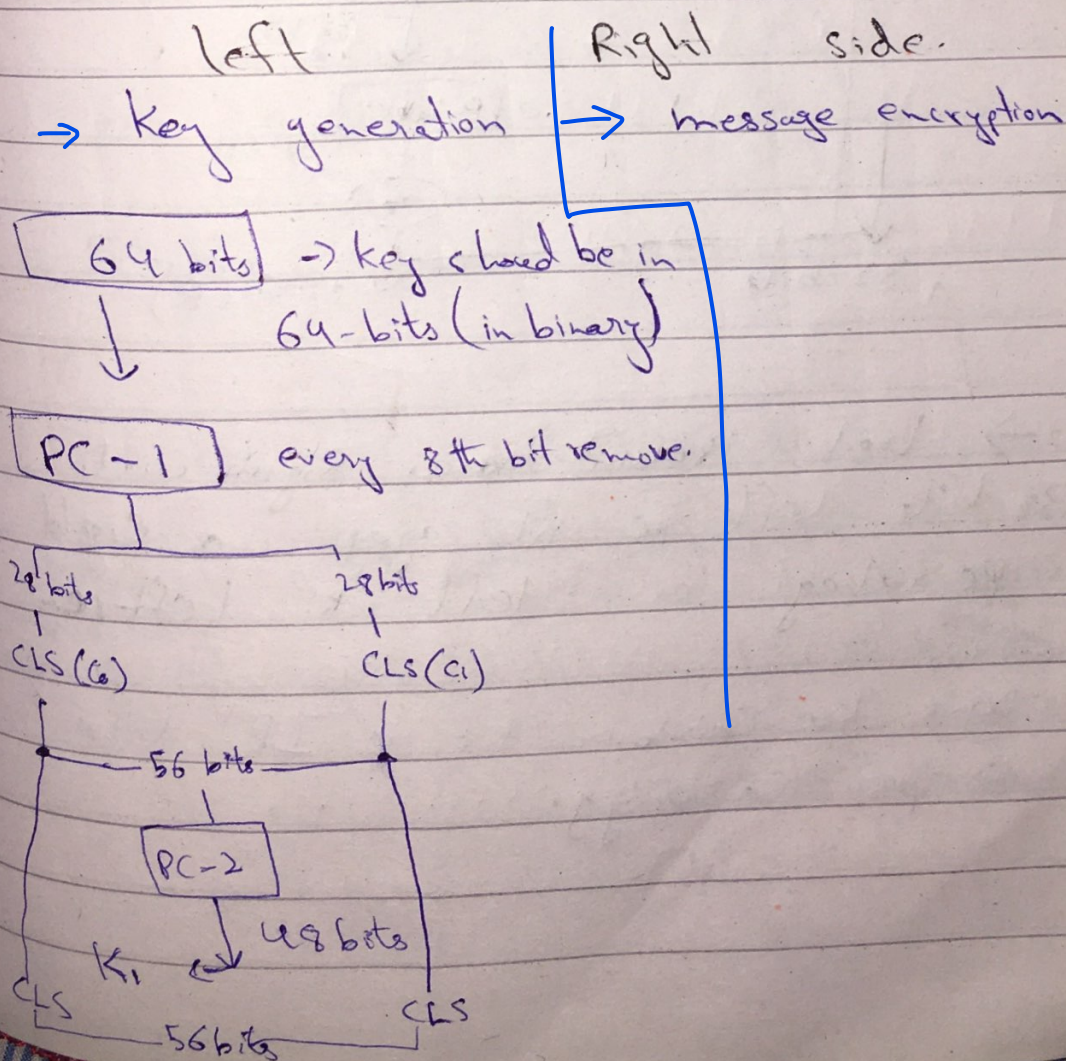 left Right side.
→ Key generation → message encryption
64 bits → key shoud be in
64-bits (in binary)
PC-1 every 8th bit remove.
28 bits 28 bits
CLS (C₀) CLS (C₁)
56 bits
PC-2
48 bits
K₁
CLS CLS
56 bits